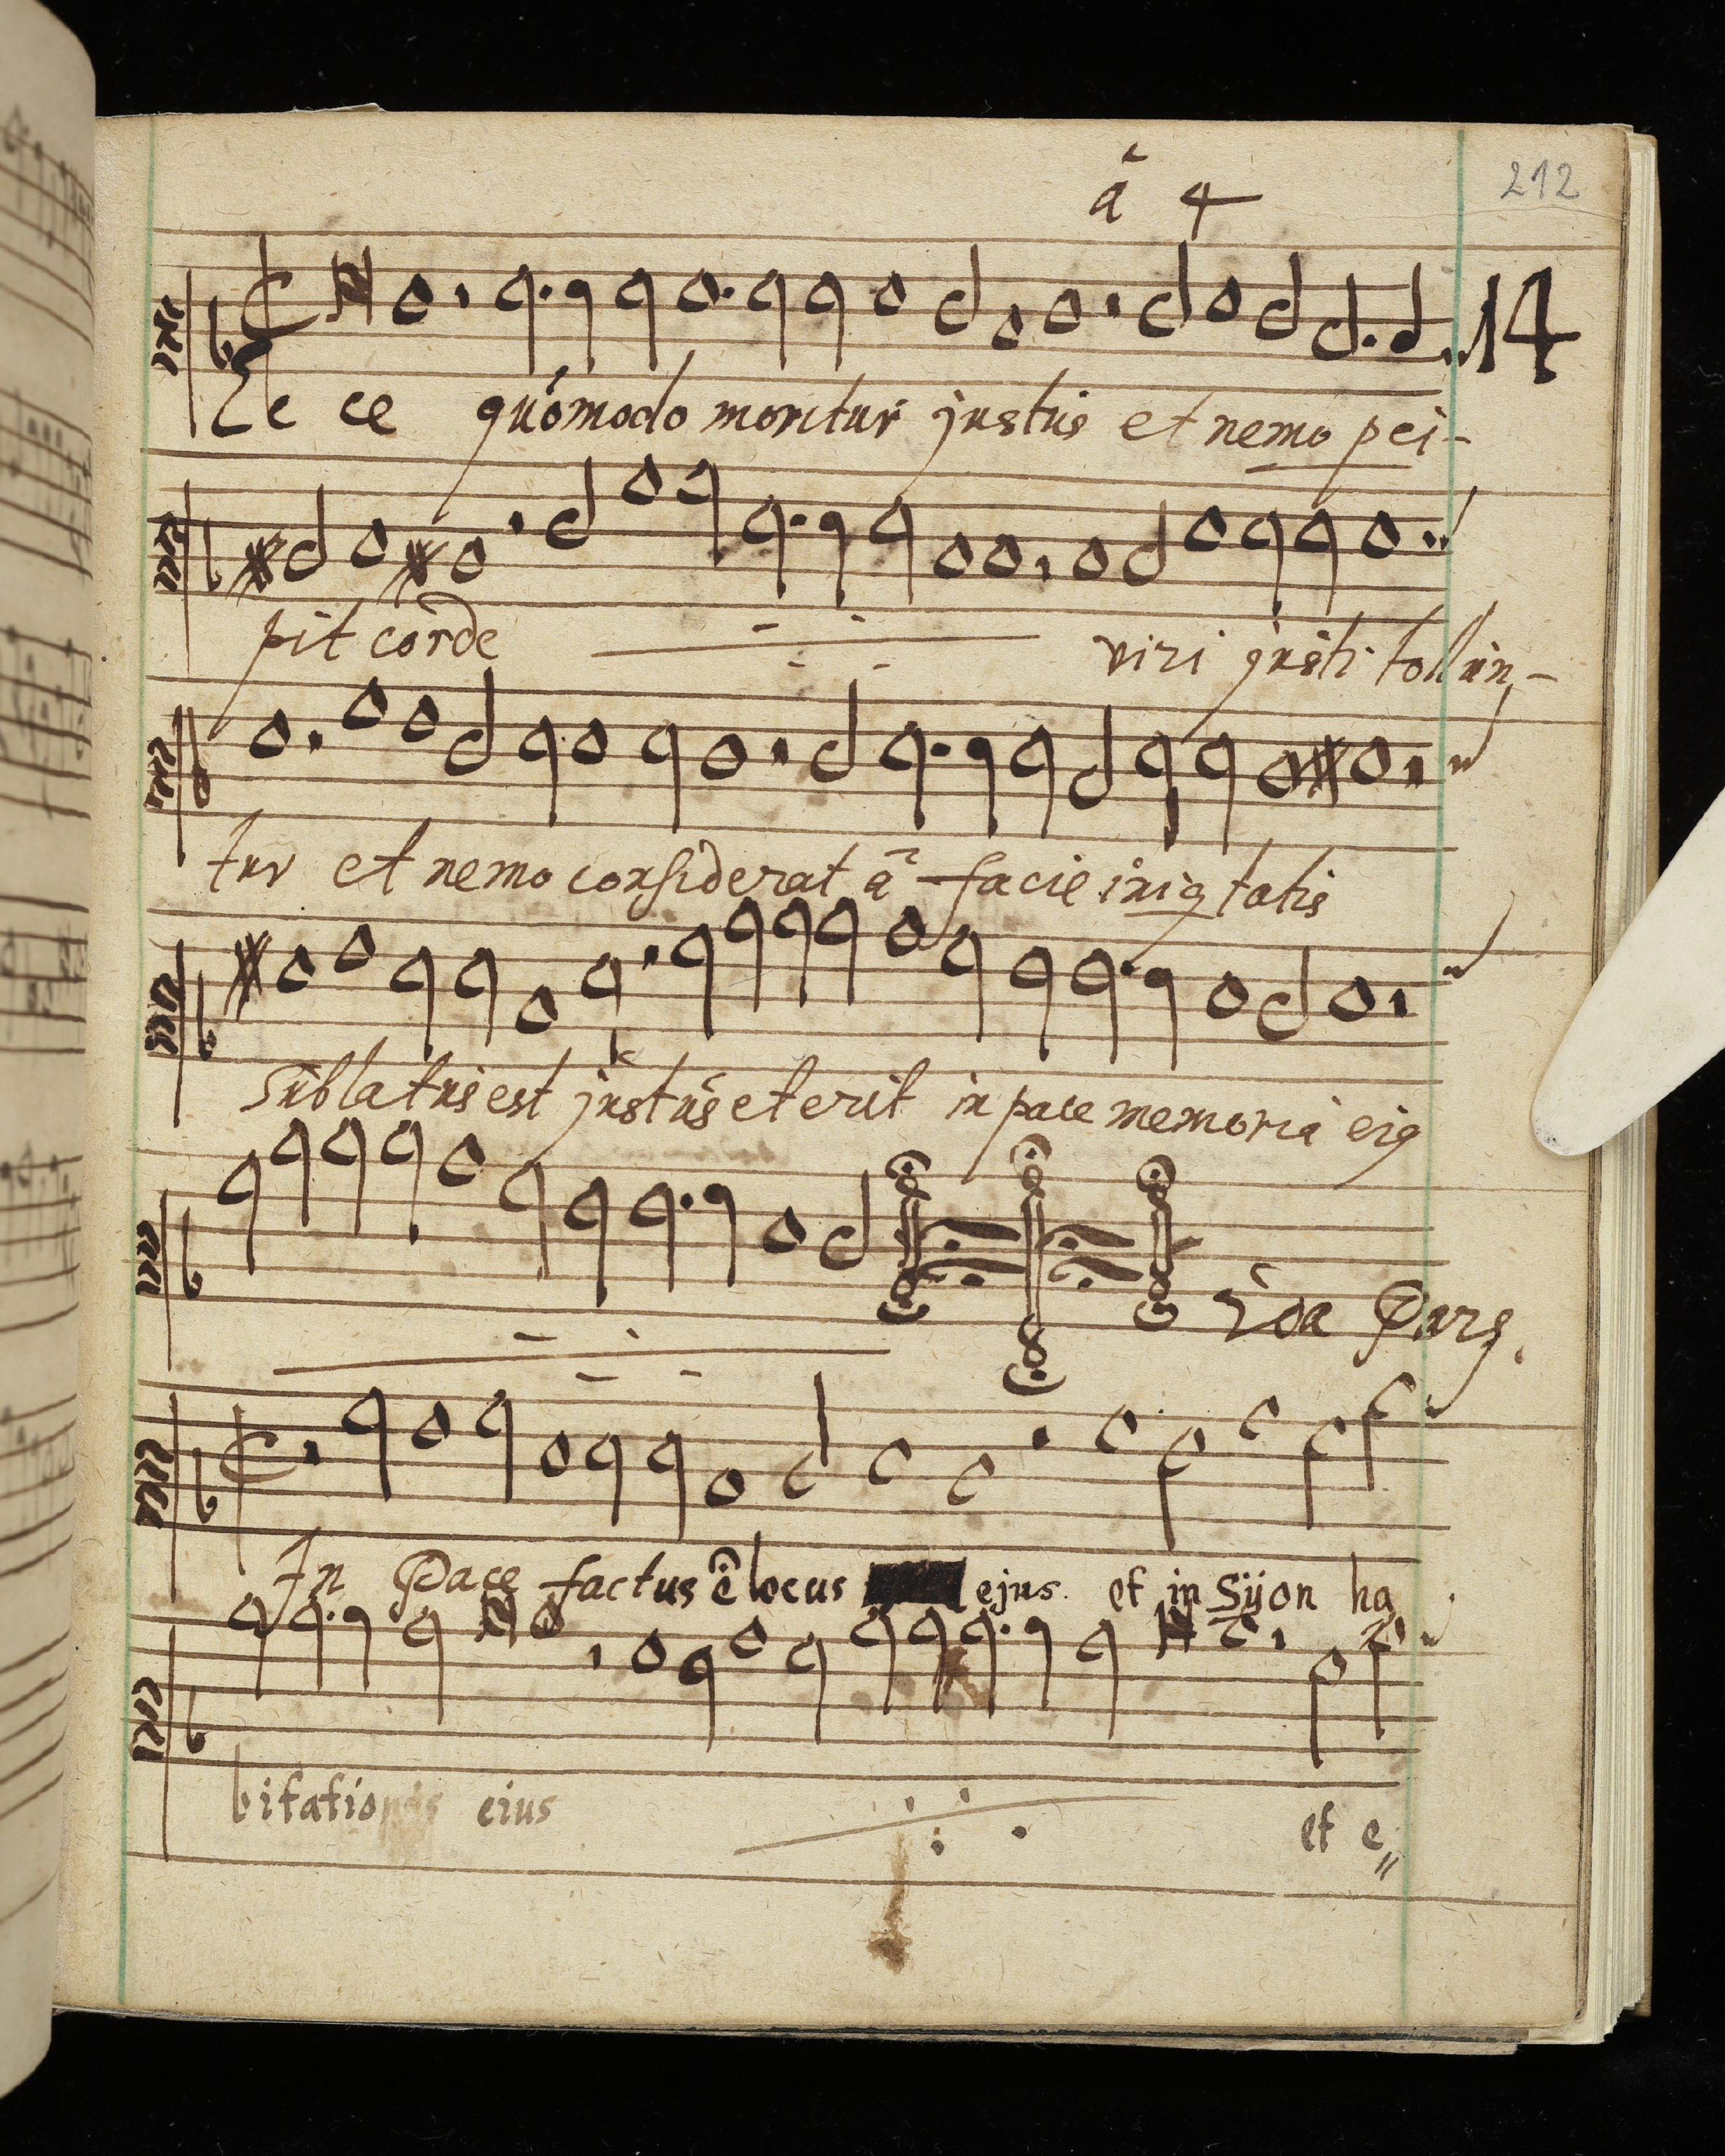 212
â 4
14
Ec ce quómodo moritur justus et nemo pci-
pit corde viri justi tollun-
tur et nemo considerat â facie iniq tatis
Sublatus est justus et erit in pace memoria eiq
2da Pars.
In Pace factus ê locus ejus. et in Sÿon ha
bitationis eius et e